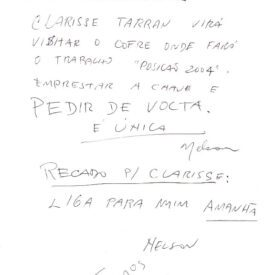 CLARISSE TARRAN VIRÁ
VISITAR O COFRE ONDE FARÁ
O TRABALHO "POSIÇÃO 2004".
EMPRESTAR A CHAVE E
PEDIR DE VOLTA.
É ÚNICA
Nelson
RECADO P/ CLARISSE:
LIGA PARA MIM AMANHÃ
NELSON